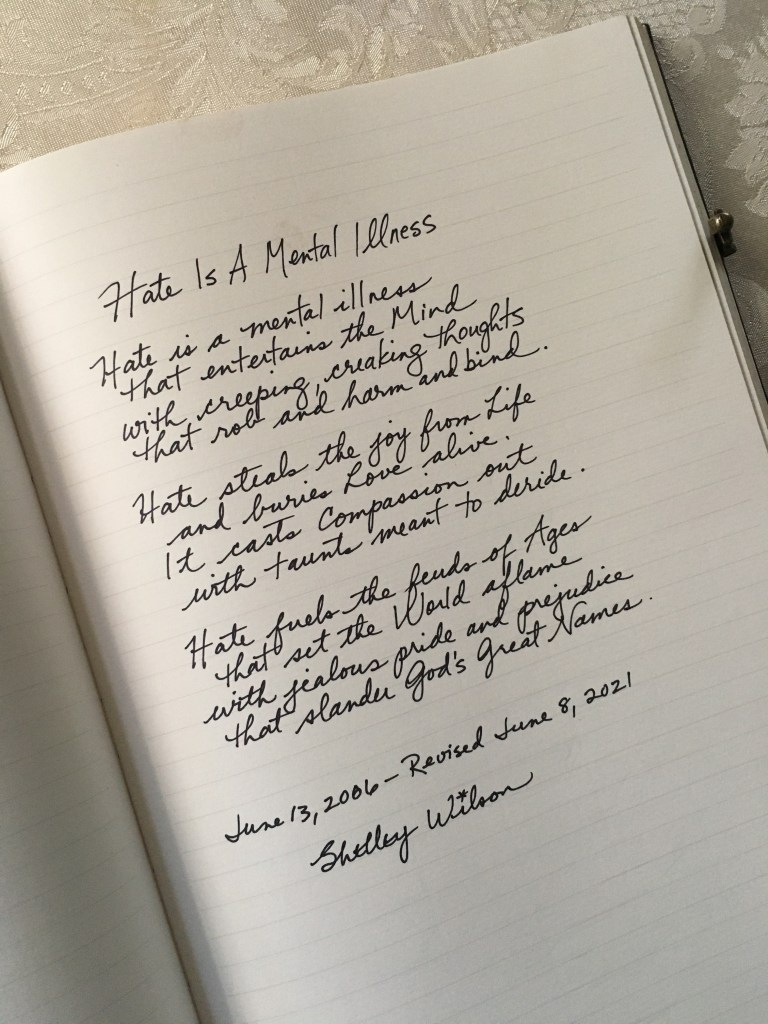 Hate Is A Mental Illness
Hate is a mental illness
that entertains the Mind
with creeping, creaking thoughts
that rob and harm and bind.
Hate steals the joy from Life
and buries Love alive.
It casts Compassion out
with taunts meant to deride.
Hate fuels the feuds of Ages
that set the World aflame
with jealous pride and prejudice
that slander God's Great Names.
June 13, 2006 – Revised June 8, 2021
Shelley Wilson